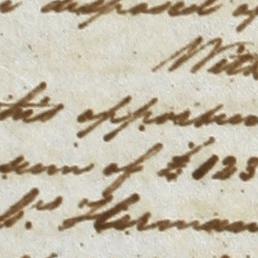 disposed of
With
this oppossum
sum of £ 123
Herman